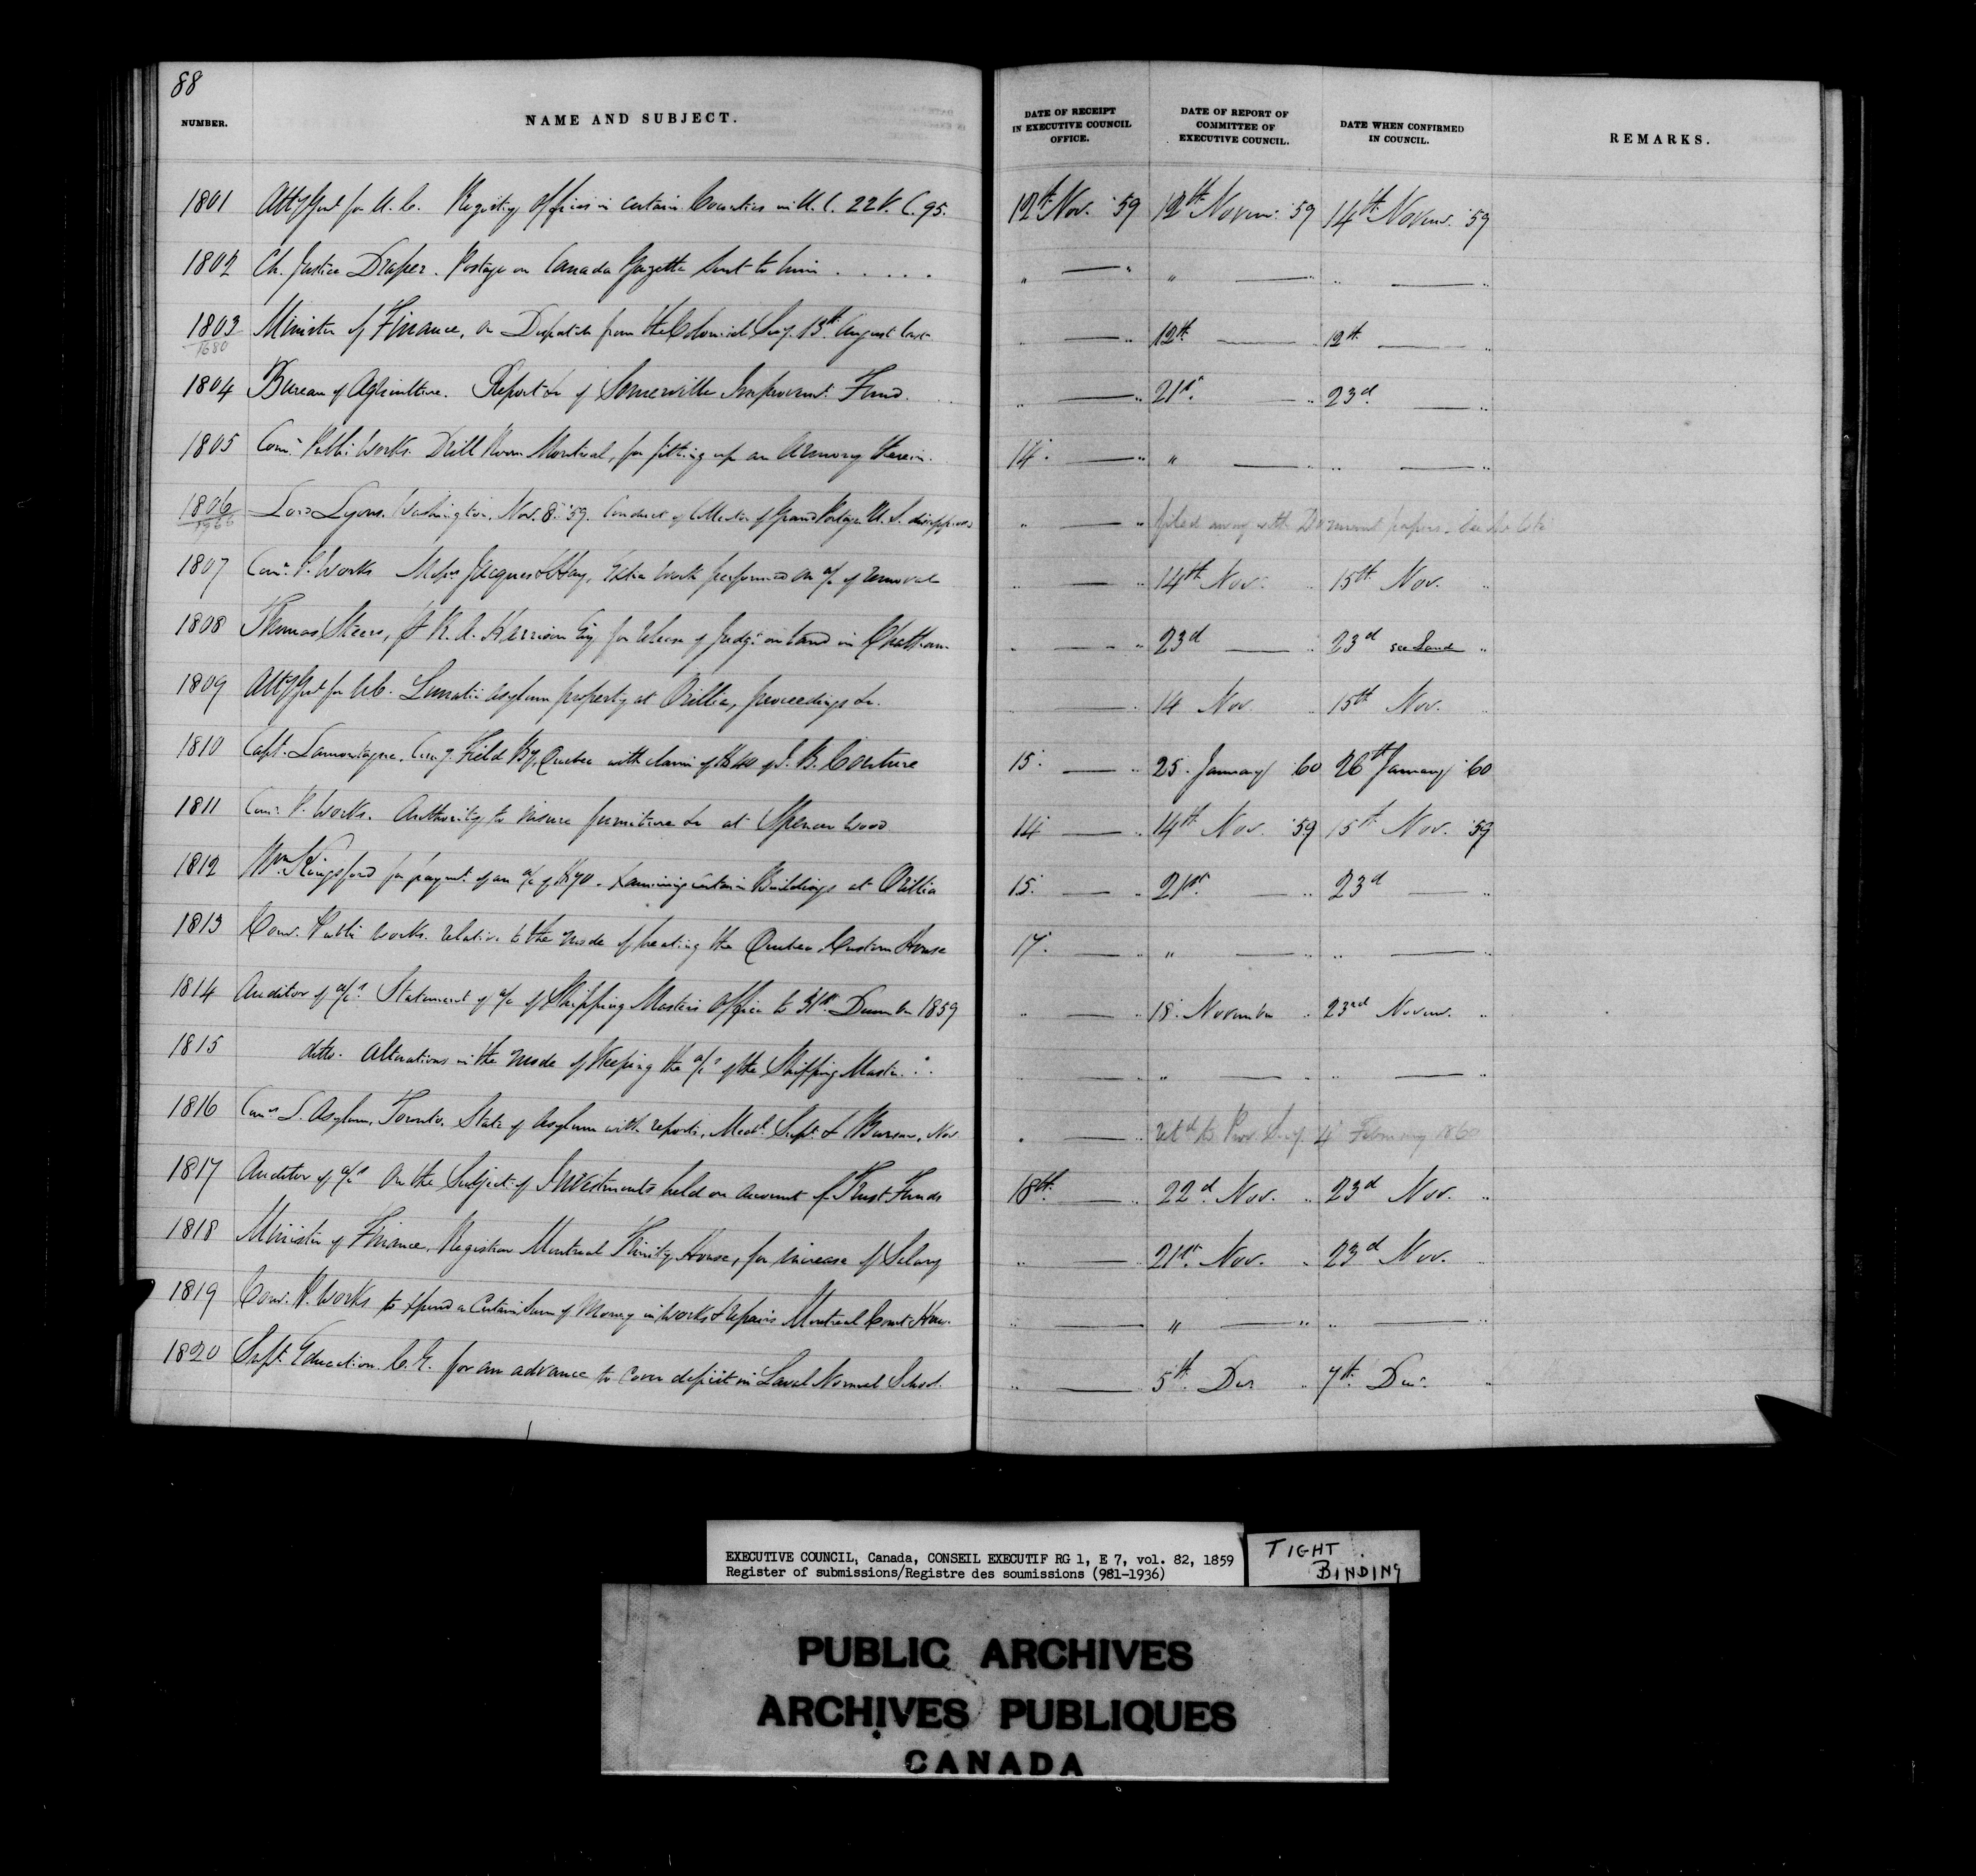 88
NUMBER. NAME AND SUBJECT. DATE OF RECEIPT IN EXECUTIVE COUNCIL OFFICE. DATE OF REPORT OF COMMITTEE OF EXECUTIVE COUNCIL. DATE WHEN CONFIRMED IN COUNCIL. REMARKS.
1801 Atty Genl for U. C. Registry Offices in certain Counties in U. C. 22 V. C. 95. 12th Nov. '59 12th Novem: '59 14th Novem. '59
1802 Ch. Justice Draper. Postage on Canada Gazette sent to him . . . . . " — " " — " " — "
1803 Minister of Finance, on Despatch from the Colonial Secy. 13th August last " — " 12th — " 12th — "
1680
1804 Bureau of Agriculture. Report &c of Somerville Improvemt. Fund. " — " 21st — " 23d — "
1805 Comr. Public Works. Drill Room Montreal, for fitting up an Armory therein. 14. — " " — " " — "
1806 Lord Lyons. Washington. Nov. 8. '59. Conduct of Collector of Grand Portage U. S. " — " filed away with papers
1807 Comr. P. Works Messrs Jacques & Hay, Extra work performed on a/c of removal " — " 14th Nov. " 15th Nov. "
1808 Thomas Steers, R. A. Harrison Esq. for release of Judgt. on land in Chatham " — " 23d — " 23d see Land "
1809 Atty Genl for U.C. Lunatic Asylum property at Orillia, proceedings &c. " — " 14 Nov. " 15th Nov. "
1810 Capt. Lamontagne, Field By. Quebec with claim of $40 of J. B. Couture 15. — " 25. January '60 26th January '60
1811 Comr. P. Works. Authority to insure furniture &c at Spencer Wood 14 — " 14th Nov. '59 15th Nov. '59
1812 Wm Kingsford for paymt. of an a/c of $70. Examining certain Buildings at Orillia 15. — " 21st — " 23d — "
1813 Comr. Public Works. relative to the mode of heating the Quebec Custom House 17. — " " — " " — "
1814 Auditor of a/cs. Statement of a/c of Shipping Masters Office to 31st December 1859 " — " 18. November " 23rd Novem. "
1815 ditto. Alterations in the mode of keeping the a/cs of the Shipping Master " — " " — " " — "
1816 Comrs L. Asylum, Toronto. State of Asylum with reports, Medl. Supt. & Bursar, Nov " — " Retd to Prov. Secy. 4 February 1860
1817 Auditor of a/cs On the Subject of Investments held on account of Trust Funds 18th. — " 22d. Nov. " 23d Nov. "
1818 Minister of Finance, Registrar Montreal Trinity House, for increase of Salary " — " 21st. Nov. " 23d Nov. "
1819 Comr. P. Works to expend a certain Sum of Money in works & repairs Montreal Court House. " — " " — " " — "
1820 Supt. Education. C. E. for an advance to cover deficit in Laval Normal School. " — 5th. Decr " 7th. Decr. "
EXECUTIVE COUNCIL, Canada, CONSEIL EXECUTIF RG 1, E 7, vol. 82, 1859
Register of submissions/Registre des soumissions (981-1936)
TIGHT
BINDING
PUBLIC ARCHIVES
ARCHIVES PUBLIQUES
CANADA